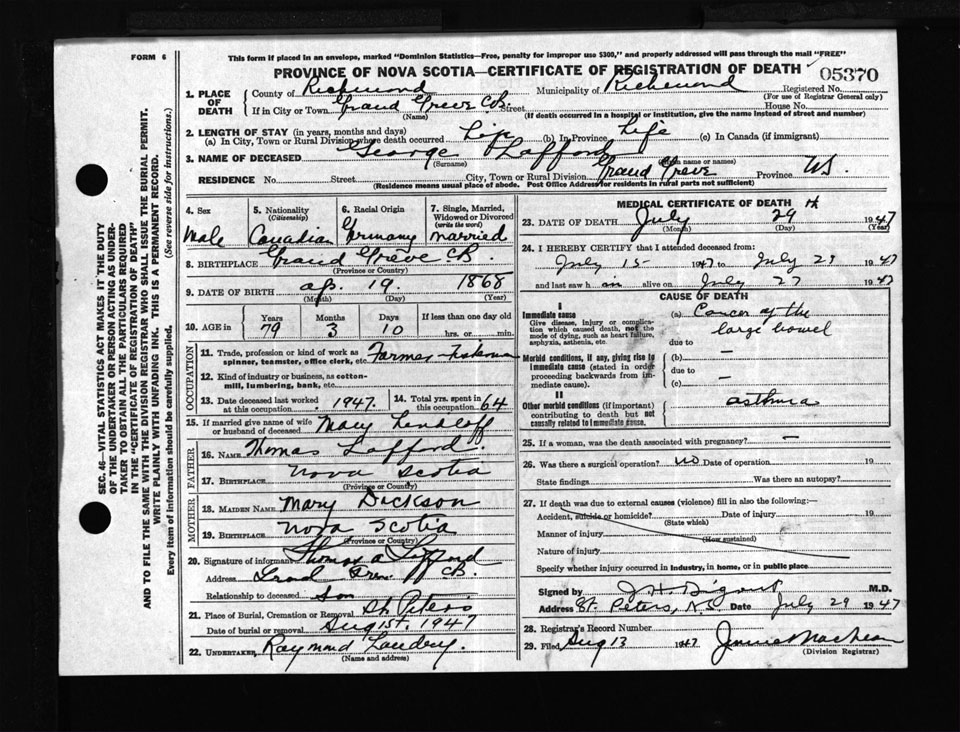 FORM 6
This form if placed in an envelope, marked "Dominion Statistics—Free, penalty for improper use $300," and properly addressed will pass through the mail "FREE"
PROVINCE OF NOVA SCOTIA—CERTIFICATE OF REGISTRATION OF DEATH
05370
1. PLACE OF DEATH
County of Richmond Municipality of Richmond Registered No.
(For use of Registrar General only)
If in City or Town Grand Greve CB Street House No.
(Name) (If death occurred in a hospital or institution, give the name instead of street and number)
2. LENGTH OF STAY (in years, months and days)
(a) In City, Town or Rural Division where death occurred Life (b) In Province Life (c) In Canada (if immigrant)
3. NAME OF DECEASED George Lafford
(Surname) name or names)
RESIDENCE No. Street City, Town or Rural Division Grand Greve Province NS.
(Residence means usual place of abode. Post Office Address for residents in rural parts not sufficient)
4. Sex Male
5. Nationality (Citizenship) Canadian
6. Racial Origin Germany
7. Single, Married, Widowed or Divorced (write the word) married
8. BIRTHPLACE Grand Greve CB.
(Province or Country)
9. DATE OF BIRTH ap. 19. 1868
(Month) (Day) (Year)
10. AGE in Years Months Days If less than one day old
79 3 10 hrs. or min.
OCCUPATION
11. Trade, profession or kind of work as spinner, teamster, office clerk, etc. Farmer Fisherman
12. Kind of industry or business, as cotton-mill, lumbering, bank, etc.
13. Date deceased last worked at this occupation 1947.
14. Total yrs. spent in this occupation 64
15. If married give name of wife or husband of deceased Mary
FATHER
16. Name Thomas Lafford.
17. Birthplace Nova Scotia
(Province or Country)
MOTHER
18. Maiden Name Mary Dickson
19. Birthplace Nova Scotia
(Province or Country)
20. Signature of informant Thomas a Lafford
Address CB.
Relationship to deceased son
21. Place of Burial, Cremation or Removal St. Peters
Date of burial or removal Aug 1st. 1947
22. Undertaker Raymond Landry.
(Name and address)
MEDICAL CERTIFICATE OF DEATH
23. DATE OF DEATH July 29 th 1947
(Month) (Day) (Year)
24. I HEREBY CERTIFY that I attended deceased from:
July 15 1947 to July 29 1947
and last saw h im alive on July 27 1947
CAUSE OF DEATH
I
Immediate cause
Give disease, injury or complication which caused death, not the mode of dying, such as heart failure, asphyxia, asthenia, etc.
(a) Cancer of the large bowel
due to
Morbid conditions, if any, giving rise to immediate cause (stated in order proceeding backwards from immediate cause).
(b) —
due to
(c) —
II
Other morbid conditions (if important) contributing to death but not causally related to immediate cause.
asthma
25. If a woman, was the death associated with pregnancy? —
26. Was there a surgical operation? no Date of operation 19
State findings Was there an autopsy?
27. If death was due to external causes (violence) fill in also the following:—
Accident, suicide or homicide? Date of injury 19
(State which)
Manner of injury
(How sustained)
Nature of injury
Specify whether injury occurred in industry, in home, or in public place
Signed by M.D.
Address St. Peters, N.S. Date July 29 1947
28. Registrar's Record Number
29. Filed Aug 13 1947
(Division Registrar)
SEC. 46—VITAL STATISTICS ACT MAKES IT THE DUTY
OF THE UNDERTAKER OR PERSON ACTING AS UNDER-
TAKER TO OBTAIN ALL THE PARTICULARS REQUIRED
IN THE "CERTIFICATE OF REGISTRATION OF DEATH"
AND TO FILE THE SAME WITH THE DIVISION REGISTRAR WHO SHALL ISSUE THE BURIAL PERMIT.
WRITE PLAINLY WITH UNFADING INK. THIS IS A PERMANENT RECORD.
Every item of information should be carefully supplied. (See reverse side for instructions.)